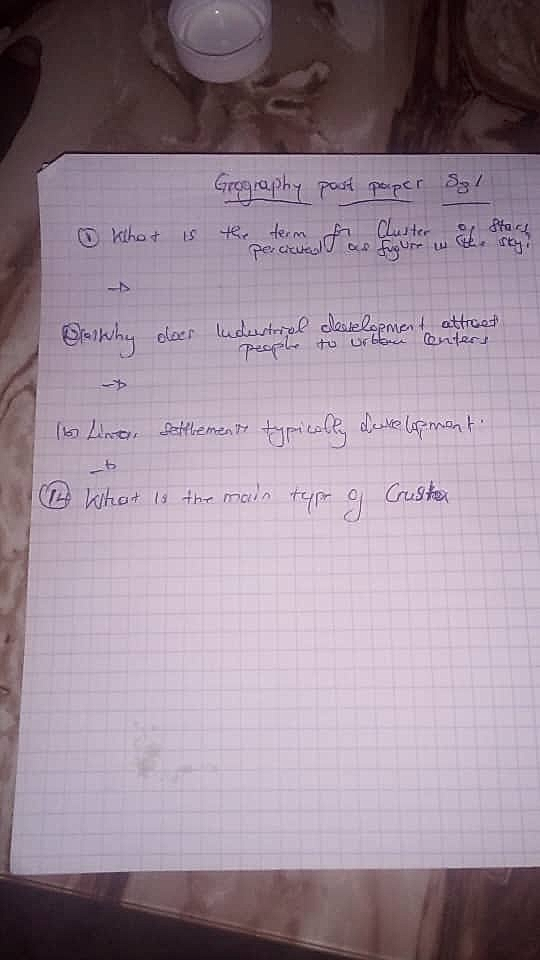 Geography past paper Sg1
① What is the term for Cluster of Stars
percieved as fugure in the sky?
→
② (a) Why does Industrial development attract
people to urban centers
→
(b) Linear Settlements typically development.
→
(14) What is the main type of Crust